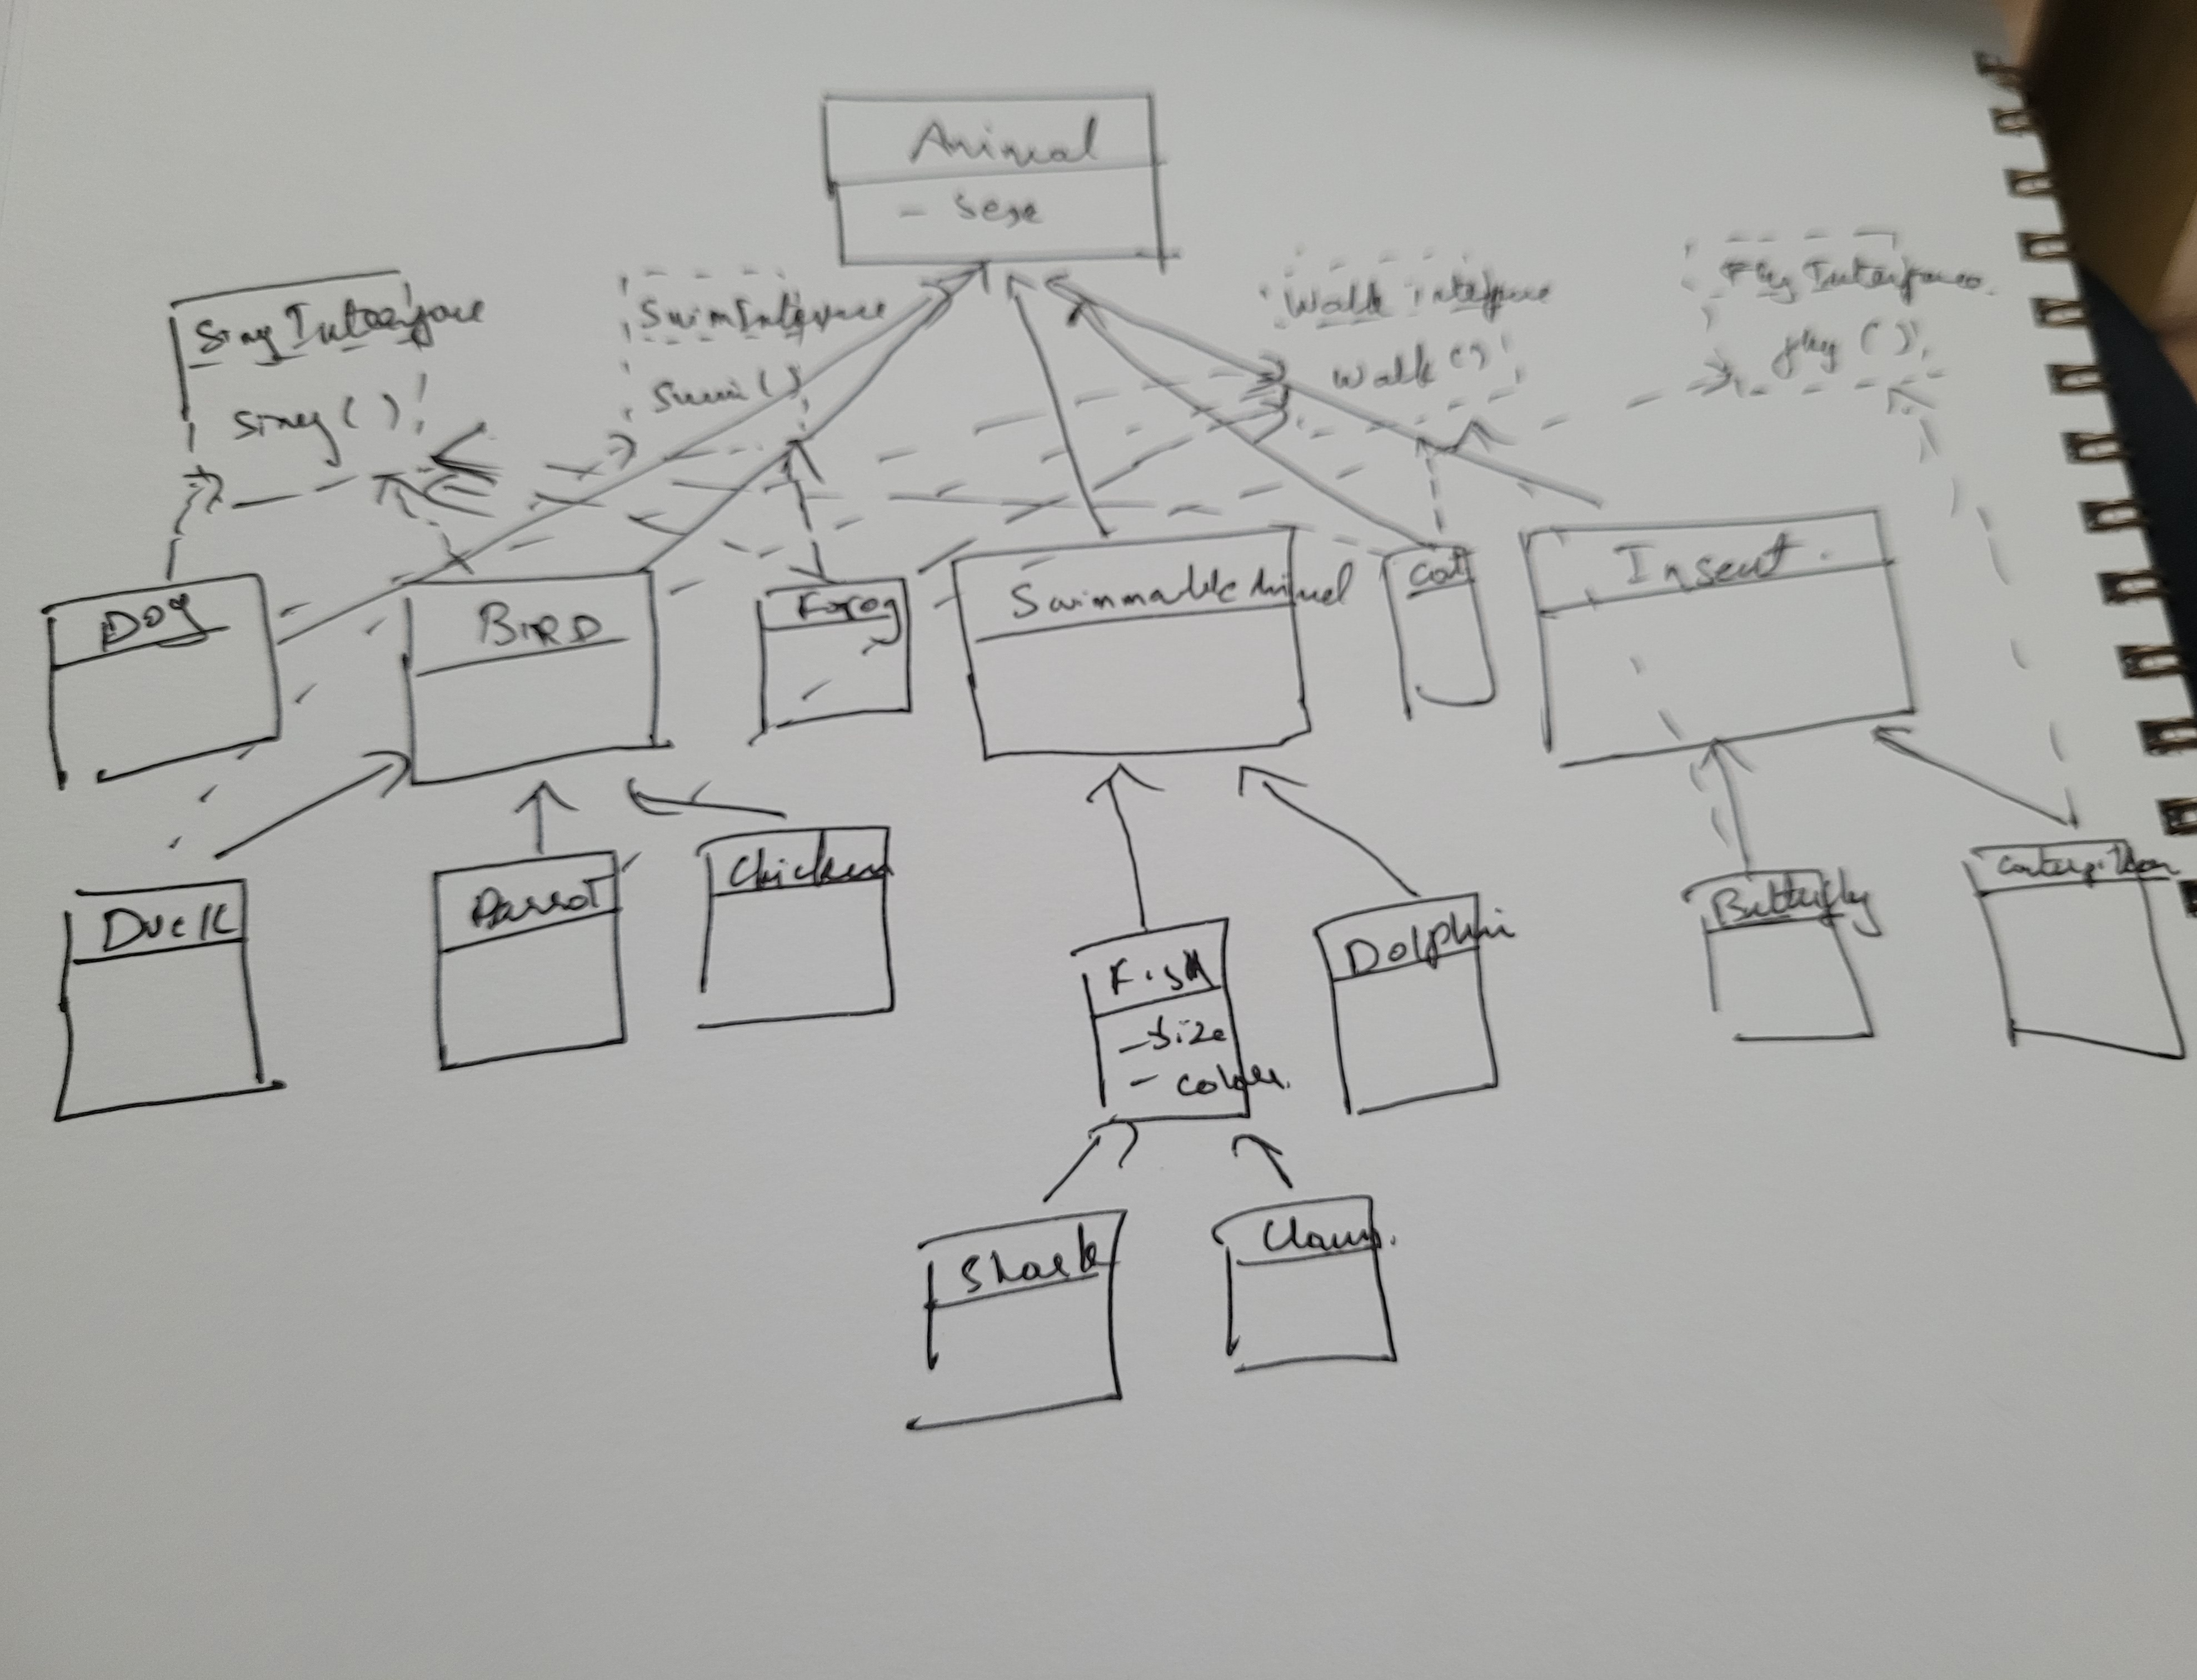 Animal
- sexe
Sing Interface
sing()
Swim Interface
Swim()
Walk interface
walk()
Fly Interface
fly()
DOg
BIRD
Frog
Swimmable Animal
Cat
Insect
Duck
Parrot
Chicken
FisH
- Size
- color
Dolphin
Butterfly
Caterpillar
Shark
Clown